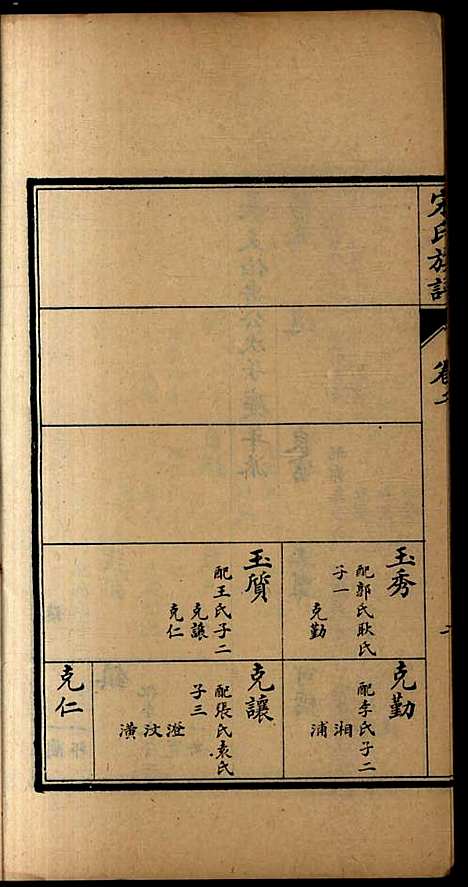 宋氏族譜
卷之
玉秀
配郭氏耿氏
子一
克勤
玉質
配王氏子二
克讓
克仁
克勤
配李氏子二
湘
浦
克讓
配張氏袁氏
子三
澄
汶
潢
克仁